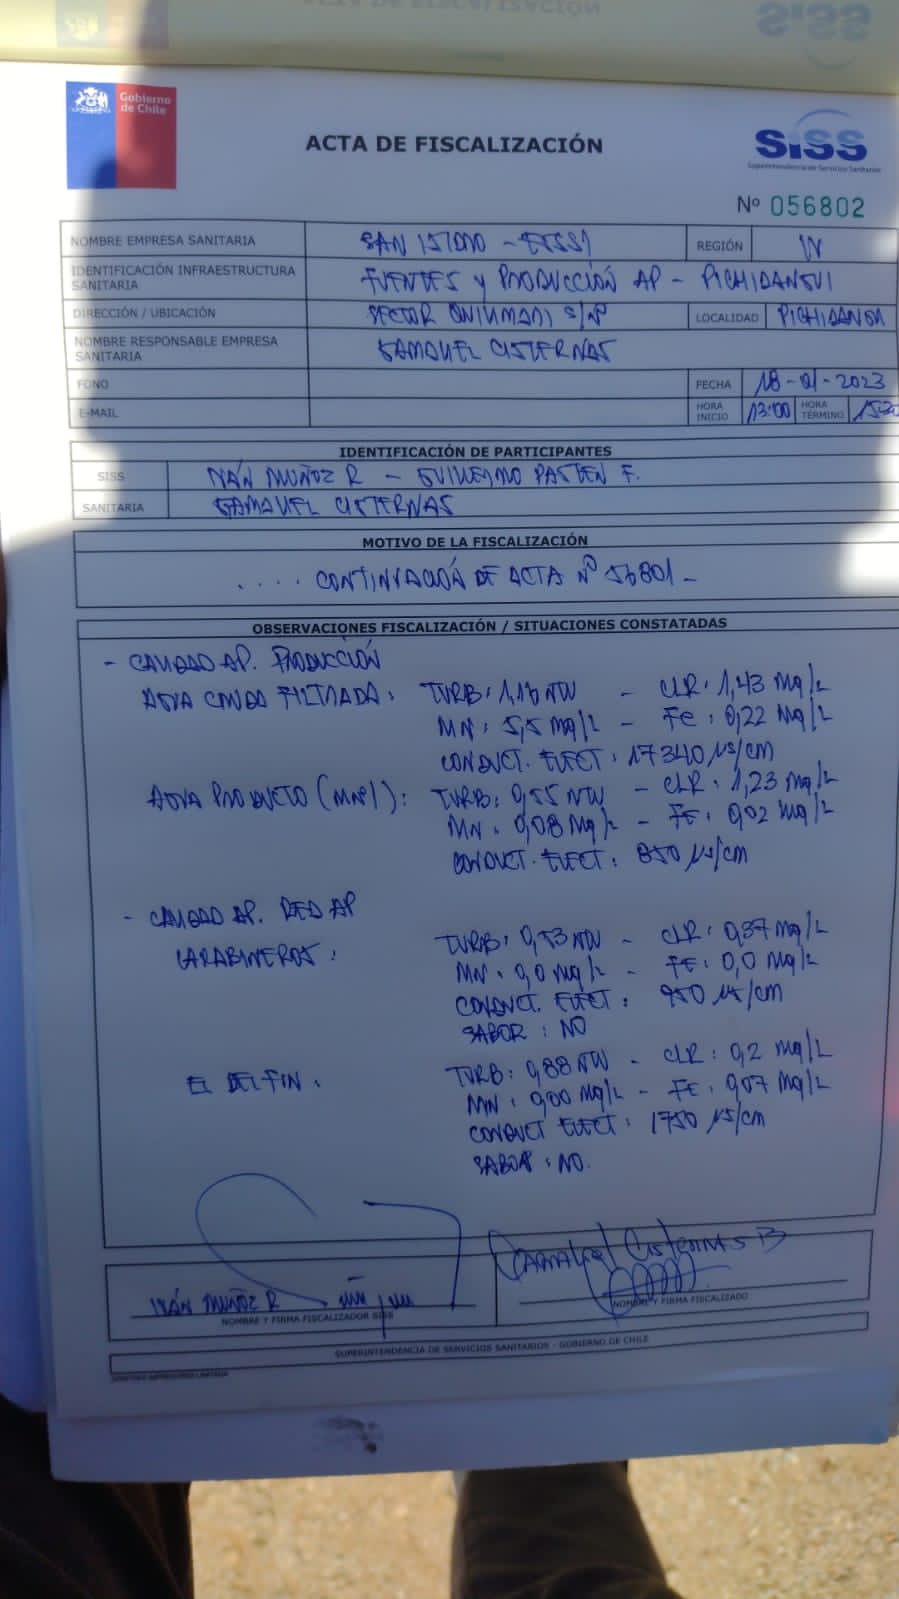 ACTA DE FISCALIZACIÓN
Gobierno
de Chile
ACTA DE FISCALIZACIÓN
SISS
Superintendencia de Servicios Sanitarios
Nº 056802
NOMBRE EMPRESA SANITARIA SAN ISIDRO - ESSSI REGIÓN IV
IDENTIFICACIÓN INFRAESTRUCTURA SANITARIA FUENTES Y PRODUCCIÓN AP - PICHIDANGUI
DIRECCIÓN / UBICACIÓN SECTOR QUILIMARI S/Nº LOCALIDAD PICHIDANGUI
NOMBRE RESPONSABLE EMPRESA SANITARIA SAMAUEL CISTERNAS
FONO FECHA 18-01-2023
E-MAIL HORA INICIO 13:00 HORA TÉRMINO 15:30
IDENTIFICACIÓN DE PARTICIPANTES
SISS IVÁN MUÑOZ R - GUILLERMO PASTEN F.
SANITARIA SAMAUEL CISTERNAS
MOTIVO DE LA FISCALIZACIÓN
.... CONTINUACIÓN DE ACTA Nº 56801 -
OBSERVACIONES FISCALIZACIÓN / SITUACIONES CONSTATADAS
- CALIDAD AP. PRODUCCIÓN
AGUA CRUDA FILTRADA: TURB: 1,16 NTU - CLR: 1,43 mg/L
MN: 5,5 mg/L - FE: 0,22 mg/L
CONDUCT. ELECT: 17340 µS/cm
AGUA PRODUCTO ( ): TURB: 0,55 NTU - CLR: 1,23 mg/L
MN: 0,08 mg/L - FE: 0,02 mg/L
CONDUCT. ELECT: 850 µS/cm
- CALIDAD AP. RED AP
CARABINEROS: TURB: 0,53 NTU - CLR: 0,37 mg/L
MN: 0,0 mg/L - FE: 0,0 mg/L
CONDUCT. ELECT: 950 µS/cm
SABOR: NO
EL DELFIN: TURB: 0,88 NTU - CLR: 0,2 mg/L
MN: 0,00 mg/L - FE: 0,07 mg/L
CONDUCT ELECT: 1750 µS/cm
SABOR: NO.
IVÁN MUÑOZ R
NOMBRE Y FIRMA FISCALIZADOR SISS
Samauel Cisternas B
NOMBRE Y FIRMA FISCALIZADO
SUPERINTENDENCIA DE SERVICIOS SANITARIOS - GOBIERNO DE CHILE